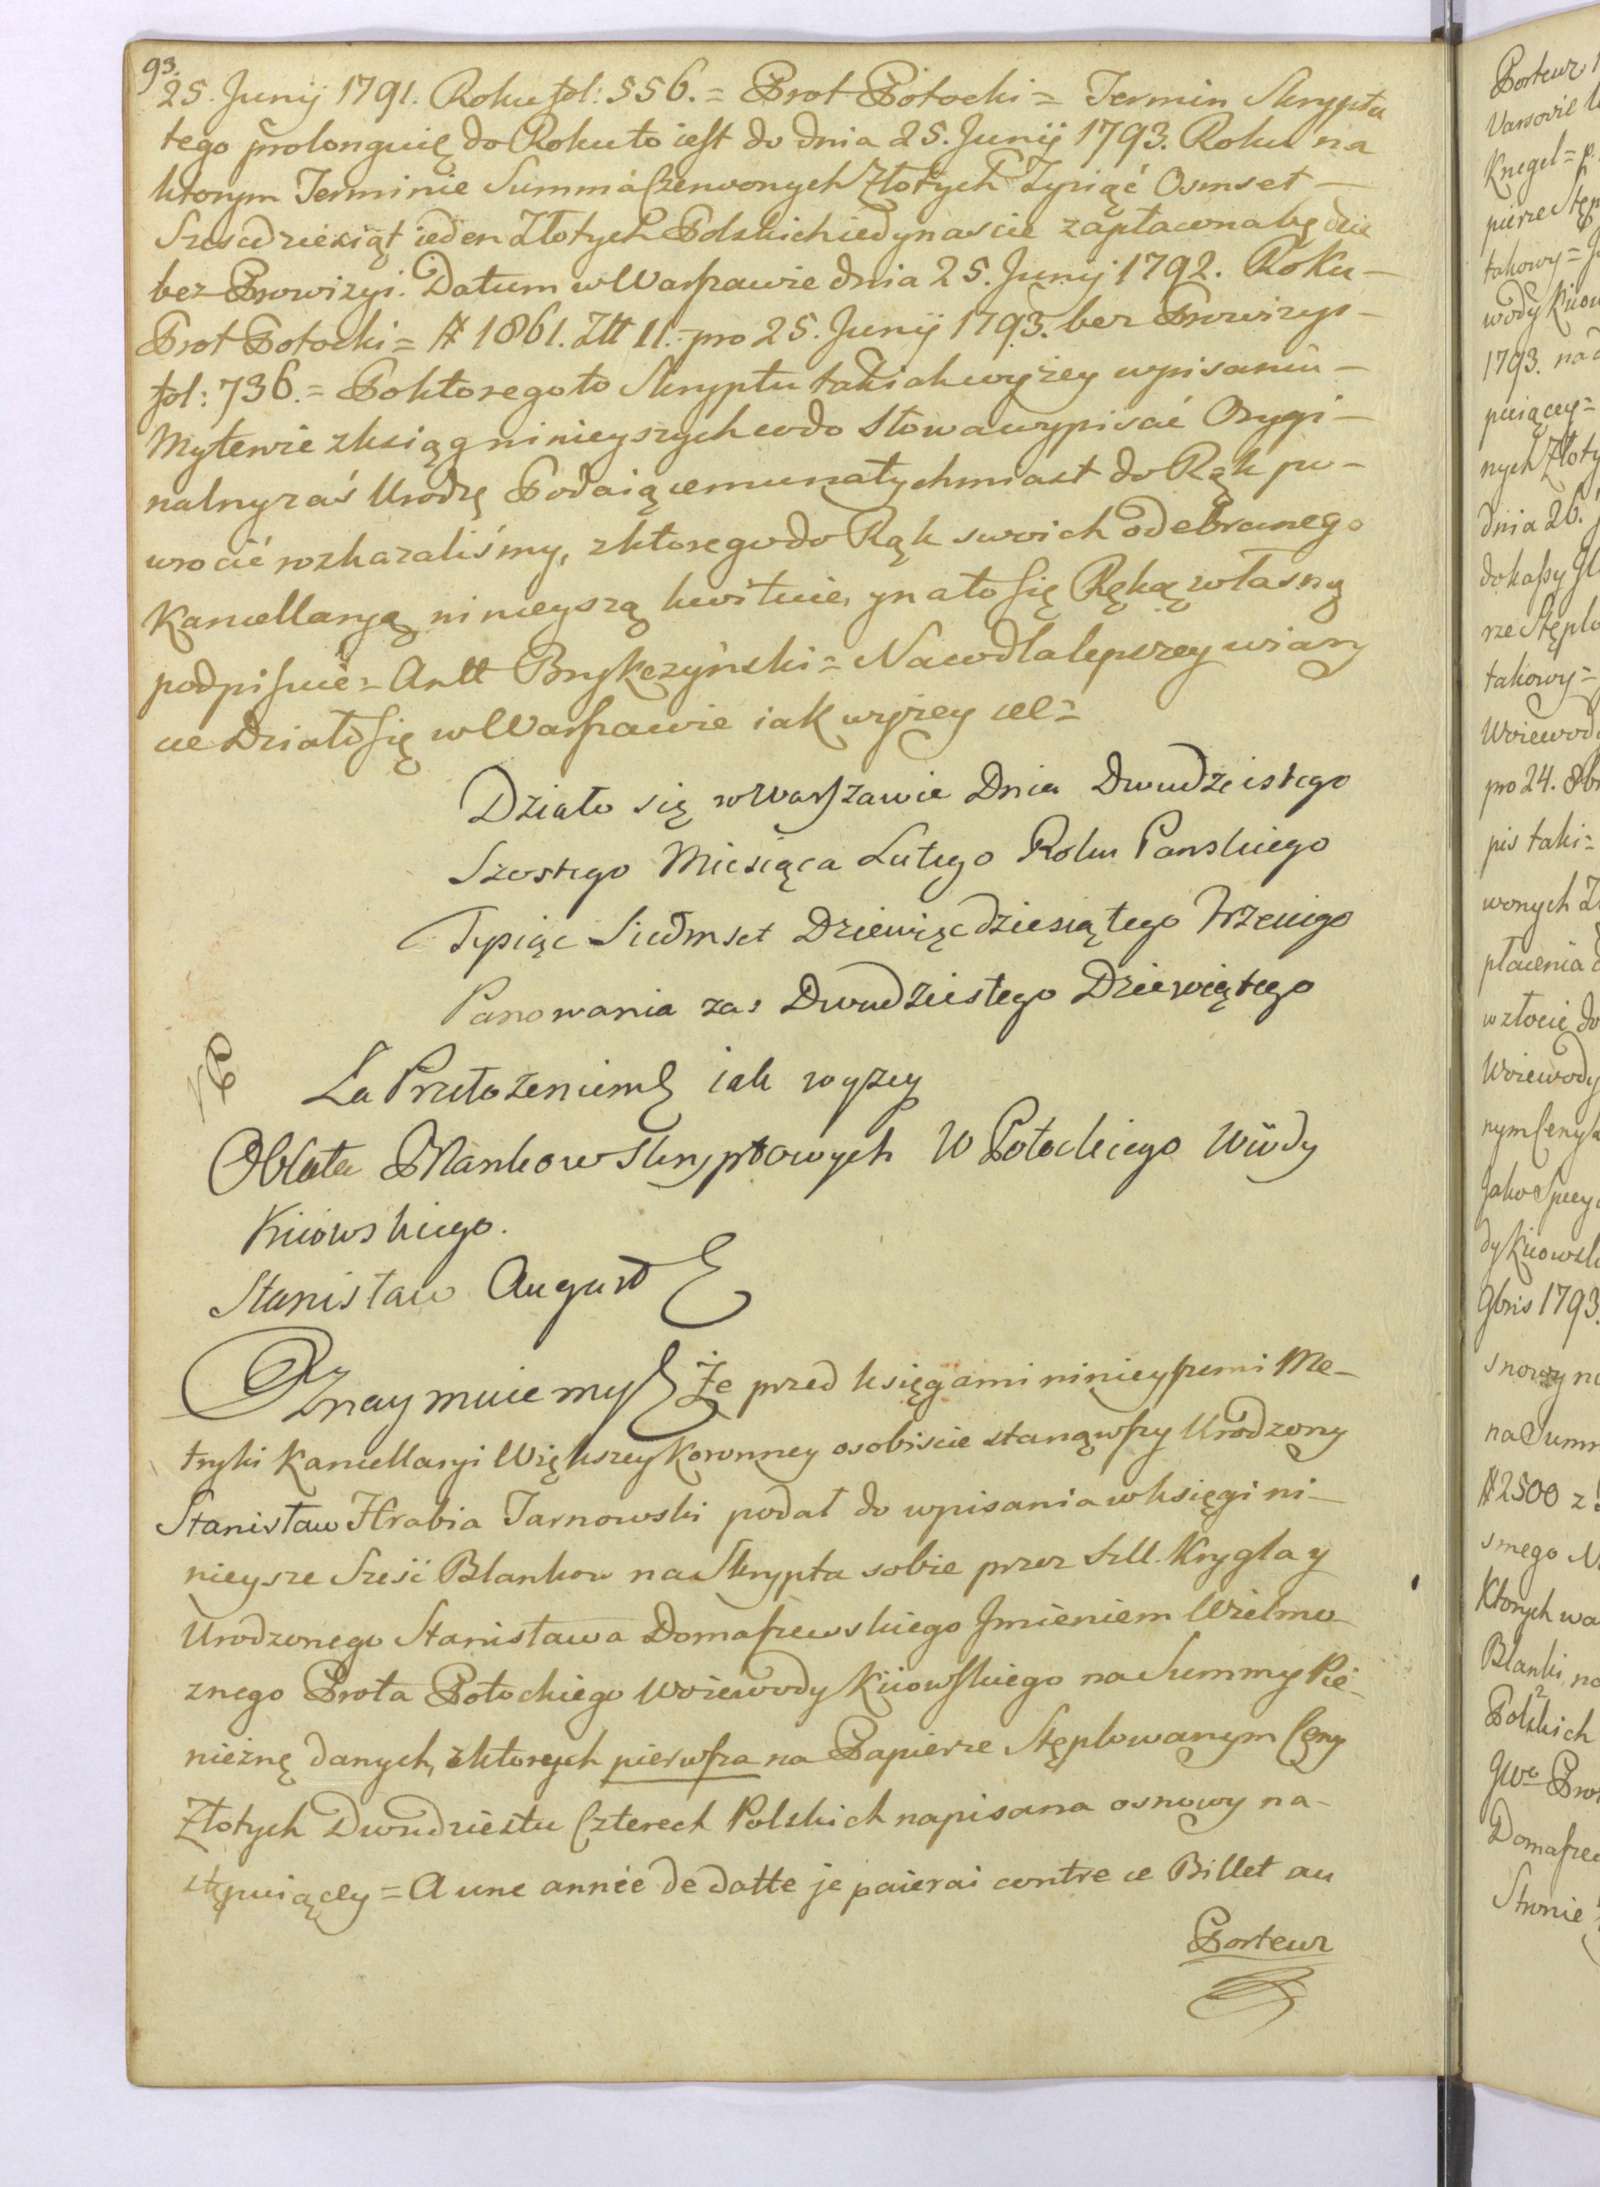 93.
25. Junij 1791. Roku fol: 556. = Prot Potocki = Termin Skryptu
tego prolonguię do Roku to iest do dnia 25. Junij 1793. Roku na
ktorym Terminie Summa Czerwonych Złotych Tysiąć Osmset —
Szescdziesiąt ieden Złotych Polskich iedynascie zapłacona będzie
bez Prowizyi. Datum w Warszawie dnia 25. Junij 1792. Roku —
Prot Potocki = # 1861. Ztt 11. pro 25. Junij 1793. bez Prowizyi —
fol: 736. = Po ktorego to Skryptu takiak wyżey wpisaniu —
My tenże z ksiąg ninieyszych co do słowa wypisać Orygi —
nalny zaś Urodz Podaiącemu natychmiast do Rąk po —
wrocić rozkazaliśmy, z ktorego do Rąk swoich odebranego
Kancellaryą ninieyszą kwituie, y na to się Ręką własną
podpisuie = Antt Brykczyński = Na co dla lepszey wiary
etc Działo się w Warszawie iak wyżey etc =
Działo się w Warszawie Dnia Dwudziestego
Szostego Miesiąca Lutego Roku Panskiego
Tysiąc Siedmset Dziewięcdziesiątego Trzeciego
Panowania zaś Dwudziestego Dziewiątego
Za Przełożeniem iak wyżey
Oblata Blankow Skryptowych W Potockiego Wdy
Kiiowskiego.
Stanisław August
Oznaymuiemy Że przed księgami ninieyszemi Me —
tryki Kancellaryi Większey Koronney osobiscie stanąwszy Urodzony
Stanisław Hrabia Tarnowski podał do wpisania w księgi ni —
nieysze Sześć Blankow na Skrypta sobie przez Szll. Krygla y
Urodzonego Stanisława Domaszewskiego Jmieniem Wielmo —
znego Prota Potockiego Woiewody Kiiowskiego na Summy Pie —
nieznę danych, z ktorych pierwsza na Papierze Stęplowanym Ceny
Złotych Dwudziestu Czterech Polskich napisana osnowy na —
stępuiącey = A une année de datte je paierai contre ce Billet au
Porteur
Porteur
Varsovie
Knegel =
pierze Stęp
takowy =
wody Kiiow
1793. na
puiącey =
nych Złoty
dnia 26.
do kassy
rze Stęplo
takowy =
Woiewod
pro 24. 8br
pis taki =
wonych
płacenia
w złocie do
Woiewody
nym Ceny
Jako
dy Kiiowsk
9bris 1793.
snowy
na Sum
# 2500 z
smego
Ktorych wa
Blanki na
Polskich
Domasze
Stronie